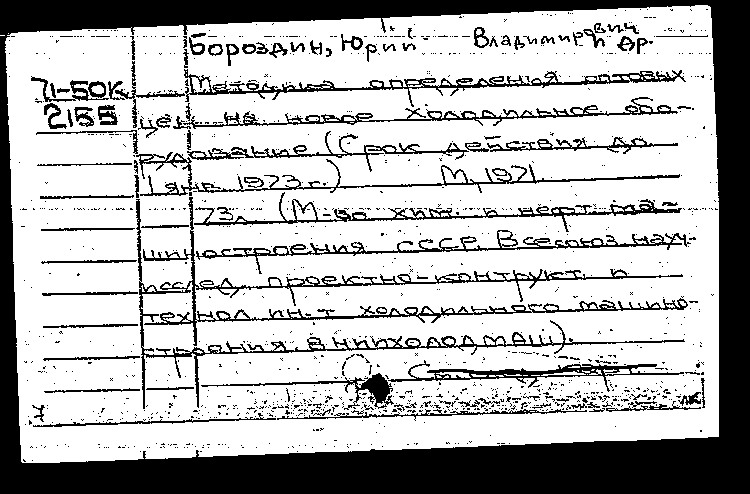 1.
Бороздин, Юрий Владимирович
и др.
71-50К Методика определения оптовых
2155 цен на новое холодильное обо-
рудование (Срок действия до
1 янв. 1973 г.) М, 1971.
73л. (М-во хим. и нефт. ма-
шиностроения СССР. Всесоюз. науч.-
исслед, проектно-конструкт. и
технол. ин-т холодильного машино-
строения. ВНИИХОЛОДМАШ).